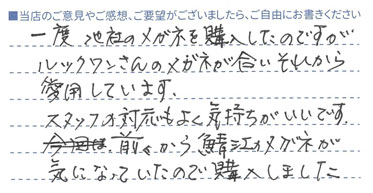 ■当店のご意見やご感想、ご要望がございましたら、ご自由にお書きください
一度 他社のメガネを購入したのですが
ルックワンさんのメガネが合いそれから
愛用しています。
スタッフの対応もよく気持ちがいいです。
今回は 前々から鯖江のメガネが
気になっていたので購入しました